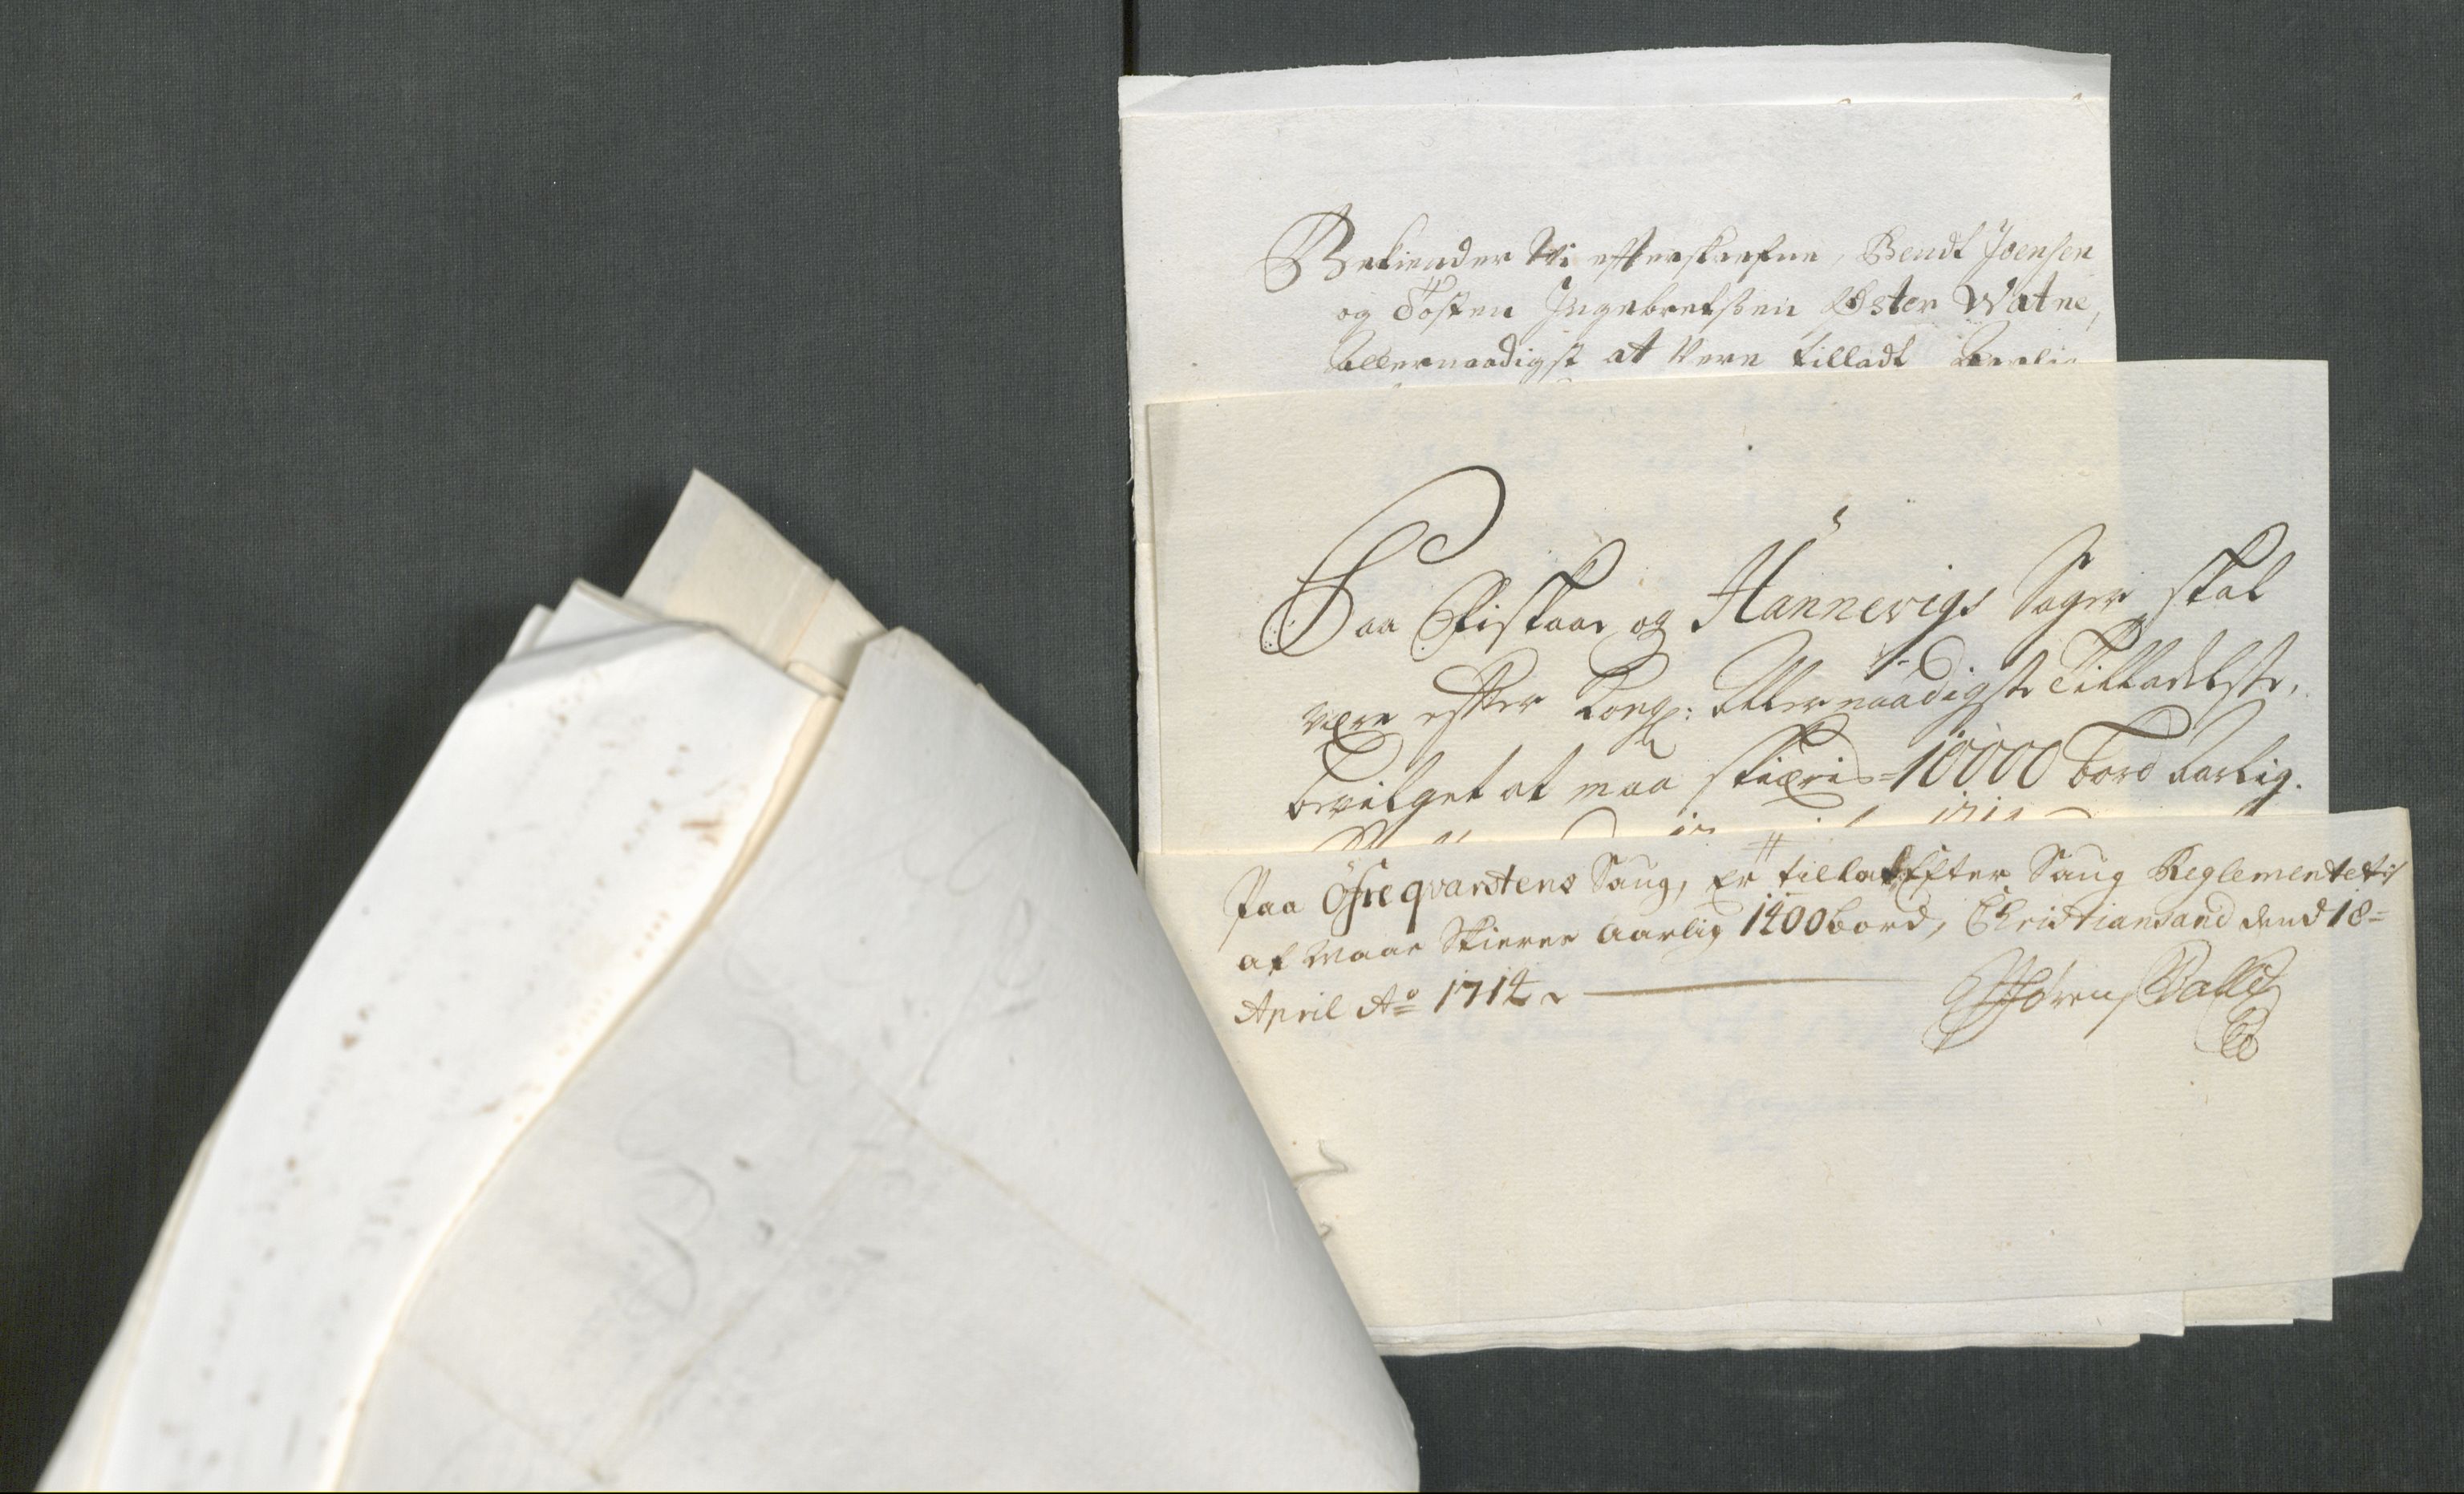 Bekiender Vi efterskrefne, Bendt Joensen
og Tosten Ingebretsen Øster Watne,
allernaadigst at vere tilladt
Paa Fiskaae og Hannevigs Sager skal
være efter Kongl: Allernaadigste Tilladelse,
bevilget at maa skiære 10000 bord Aarlig.
Paa Öfre qvarstens Saug, er tillat Efter Saug Reglementet
at maae Skierer Aarlig 1400 bord, Christiansand dend 18=
April Ao 1714
Sörens Balle